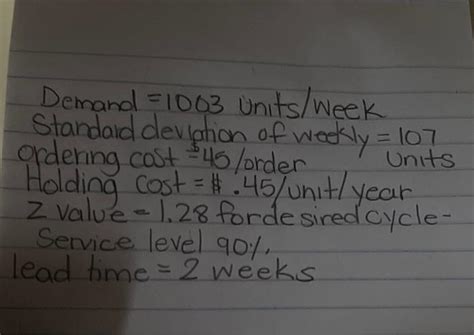 Demand = 1003 units/week
Standard deviation of weekly = 107 units
ordering cost = $45/order
Holding cost = $.45/unit/year
Z value = 1.28 for desired cycle-
Service level 90%,
lead time = 2 weeks